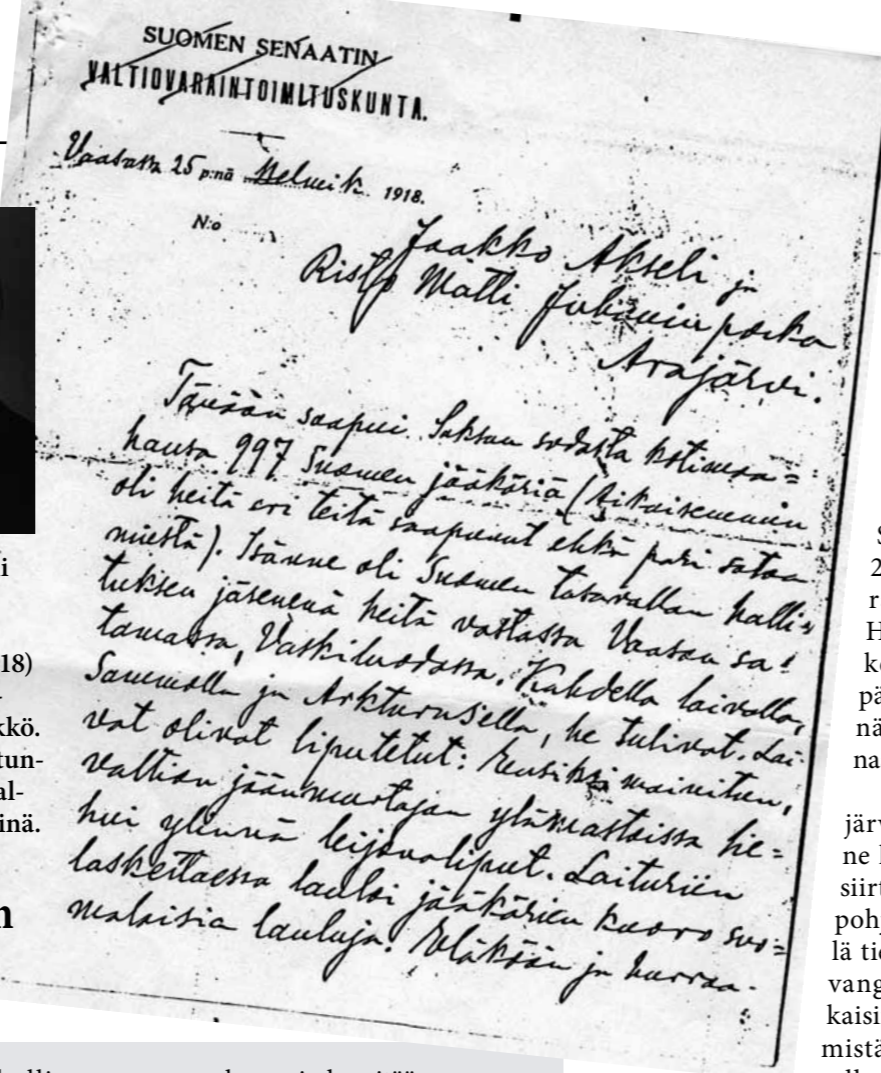 SUOMEN SENAATIN
VALTIOVARAINTOIMITUSKUNTA.
Vaasassa 25 p:nä Helmik. 1918.
N:o
Jaakko Akseli ja
Risto Matti Juhaninpoika
Arajärvi.
Tänään saapui Saksan sodasta kotimaa=
hansa 997 Suomen jääkäriä (Aikaisemmin
oli heitä eri teitä saapunut ehkä pari sataa
miestä). Isänne oli Suomen tasavallan halli=
tuksen jäsenenä heitä vastassa Vaasan sa=
tamassa, Vaskiluodossa. Kahdella laivalla,
Sammolla ja Arkturusella, he tulivat. Lai-
vat olivat liputetut: Ensiksi mainitun,
valtion jäänmurtajan ylämastoissa lie=
hui ylinnä leijonaliput. Laituriin
laskettaessa lauloi jääkärien kuoro suo=
malaisia lauluja. Eläköön ja hurraa-
i
18)
-
kkö.
tun-
al-
inä.
n
S
2
r
H
ke
pä
nä
na
järv
ne l
siirt
poh
lä tie
vang
kaisi
mistä